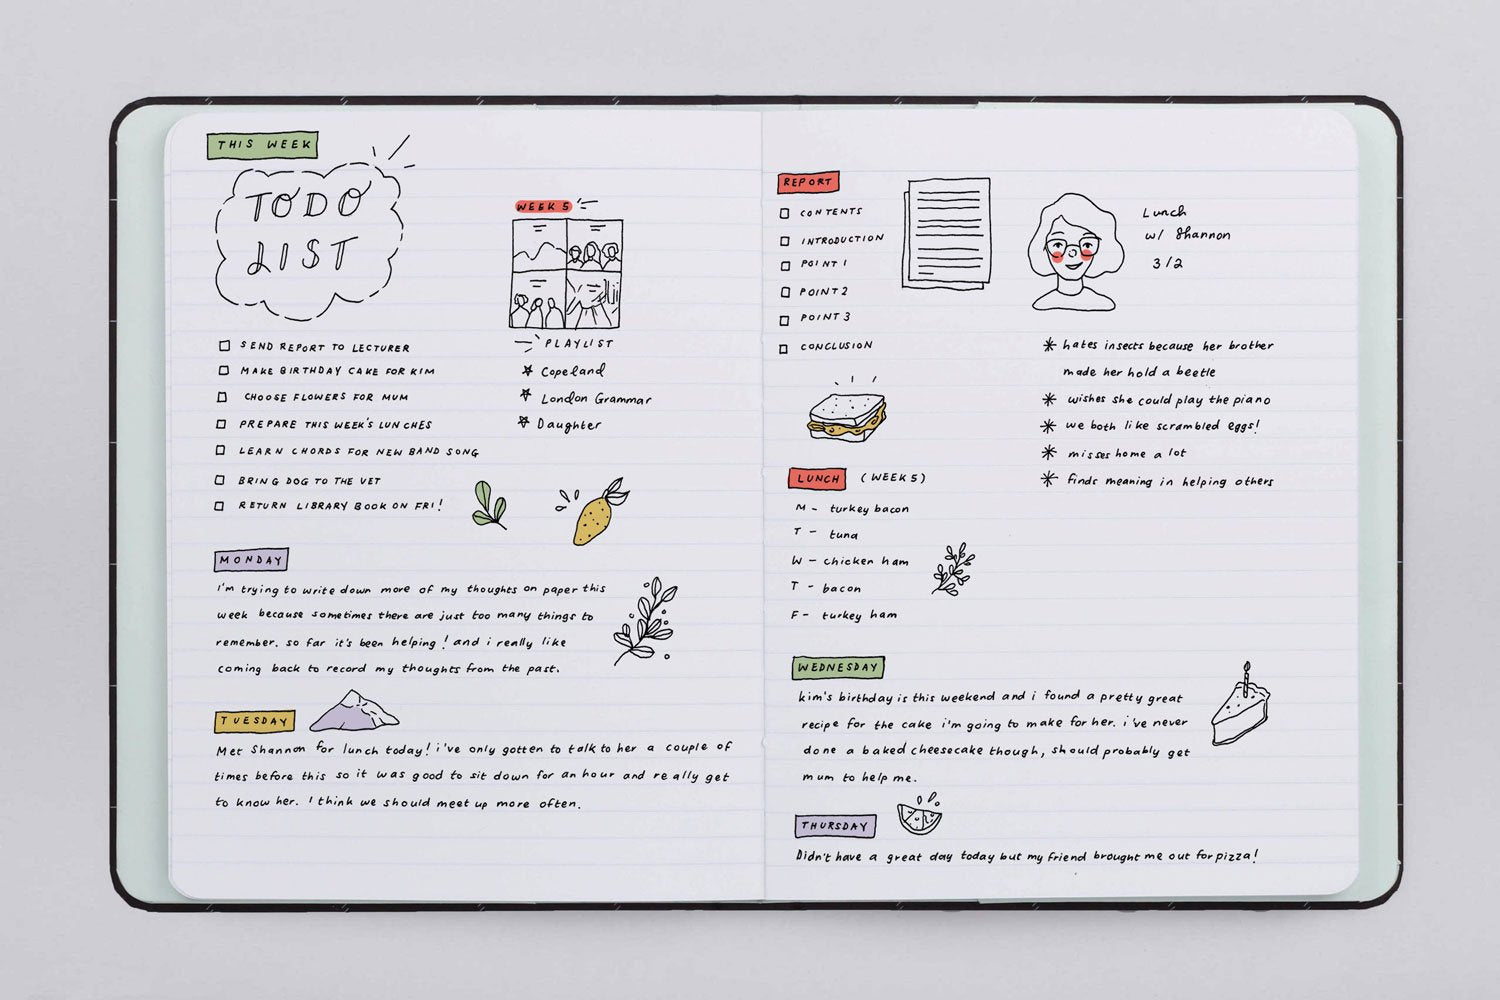 THIS WEEK
TODO
LIST
SEND REPORT TO LECTURER
MAKE BIRTHDAY CAKE FOR KIM
CHOOSE FLOWERS FOR MUM
PREPARE THIS WEEK'S LUNCHES
LEARN CHORDS FOR NEW BAND SONG
BRING DOG TO THE VET
RETURN LIBRARY BOOK ON FRI!
WEEK 5
PLAYLIST
Copeland
London Grammar
Daughter
MONDAY
i'm trying to write down more of my thoughts on paper this
week because sometimes there are just too many things to
remember. so far it's been helping! and i really like
coming back to record my thoughts from the past.
TUESDAY
Met Shannon for lunch today! i've only gotten to talk to her a couple of
times before this so it was good to sit down for an hour and really get
to know her. I think we should meet up more often.
REPORT
CONTENTS
INTRODUCTION
POINT 1
POINT 2
POINT 3
CONCLUSION
Lunch
w/ Shannon
3/2
hates insects because her brother
made her hold a beetle
wishes she could play the piano
we both like scrambled eggs!
misses home a lot
finds meaning in helping others
LUNCH (WEEK 5)
M - turkey bacon
T - tuna
W - chicken ham
T - bacon
F - turkey ham
WEDNESDAY
kim's birthday is this weekend and i found a pretty great
recipe for the cake i'm going to make for her. i've never
done a baked cheesecake though, should probably get
mum to help me.
THURSDAY
Didn't have a great day today but my friend brought me out for pizza!